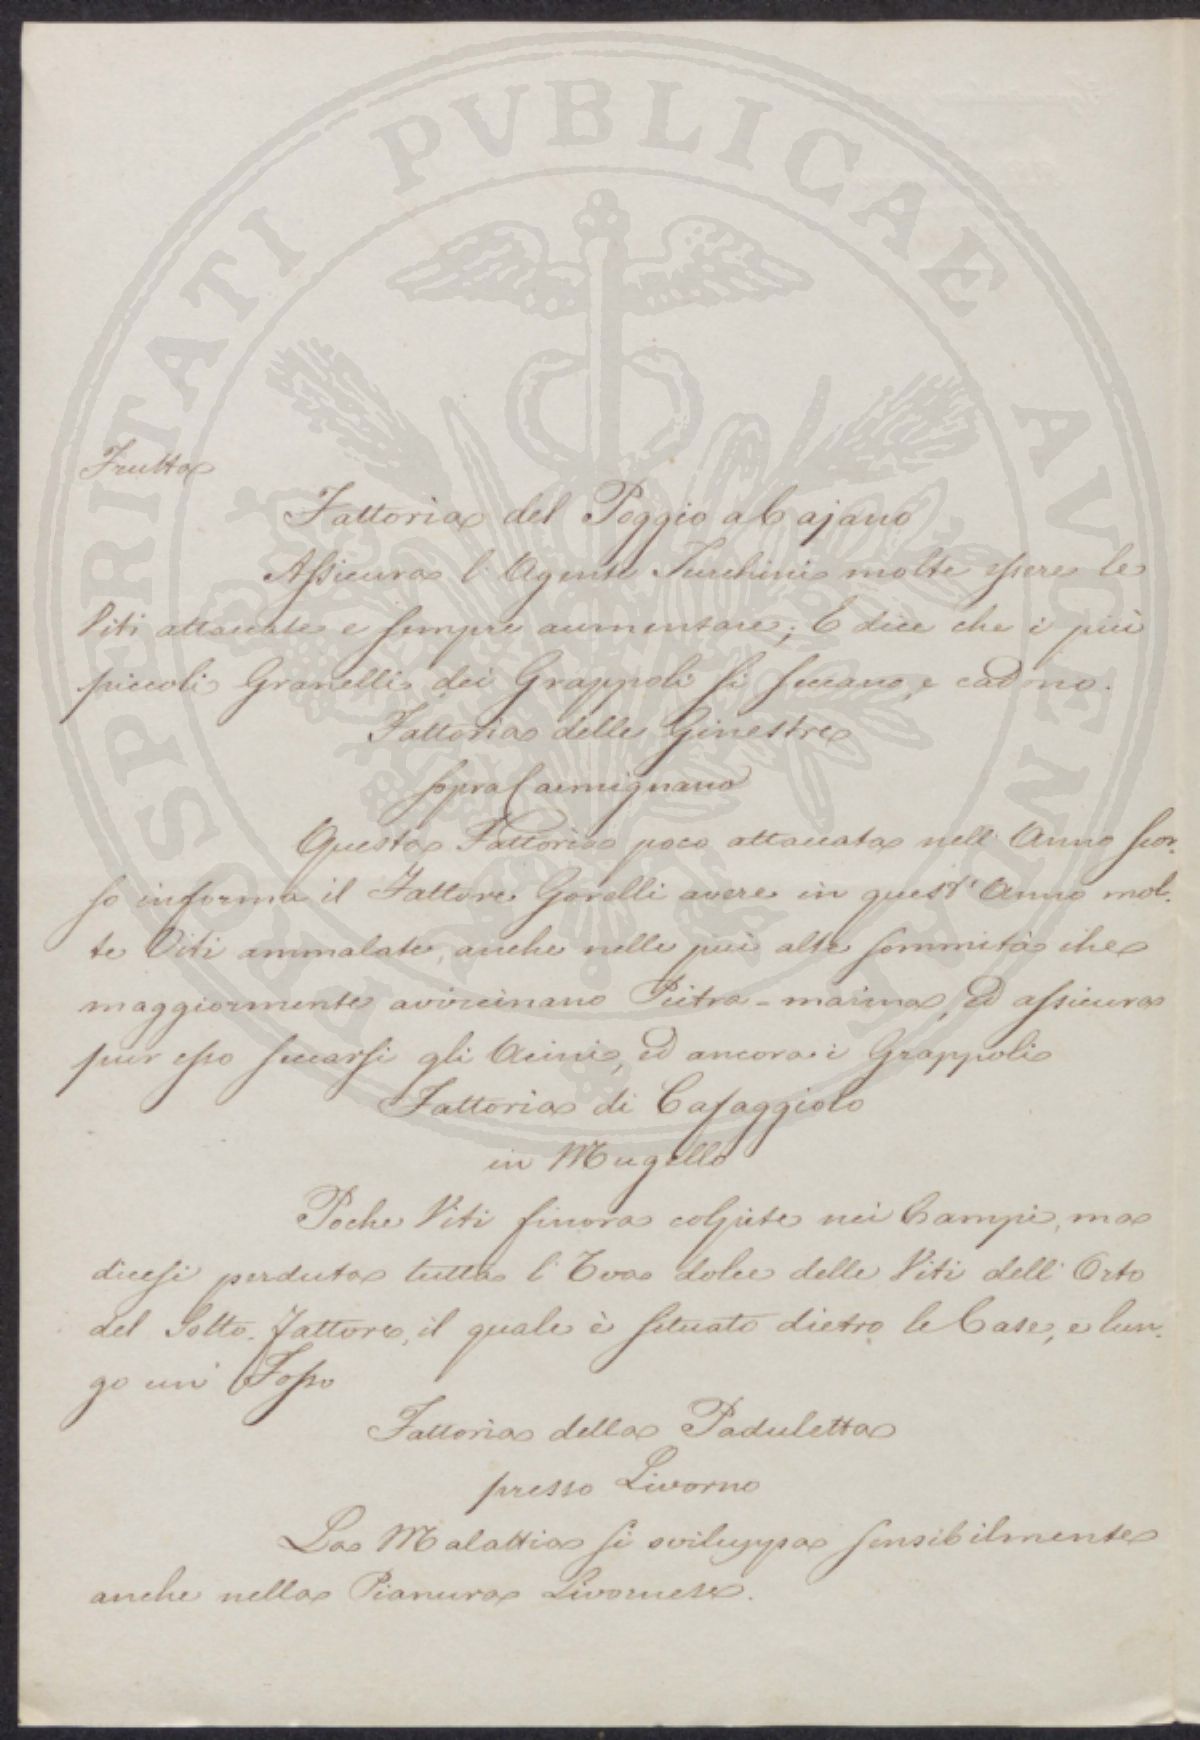 PROSPERITATI PVBLICAE AVGENDAE
Frutta
Fattoria del Poggio a Cajano
Assicura l'Agente Turchini molte essere le
Viti attaccate e sempre aumentare; E dice che i più
piccoli Granelli dei Grappoli si seccano, e cadono.
Fattoria delle Ginestre
sopra Carmignano
Questa Fattoria poco attaccata nell'Anno scor-
so informa il Fattore Gorelli avere in quest'Anno mol-
te Viti ammalate, anche nelle più alte sommità che
maggiormente avvicinano Pietra-marina, ed assicura
pur esso seccarsi gli Acini, ed ancora i Grappoli
Fattoria di Cafaggiolo
in Mugello
Poche Viti finora colpite nei Campi, ma
dicesi perduta tutta l'Uva dolce delle Viti dell'Orto
del Sotto-Fattore, il quale è situato dietro le Case, e lun-
go un' Fosso
Fattoria della Paduletta
presso Livorno
La Malattia si sviluppa sensibilmente
anche nella Pianura Livornese.